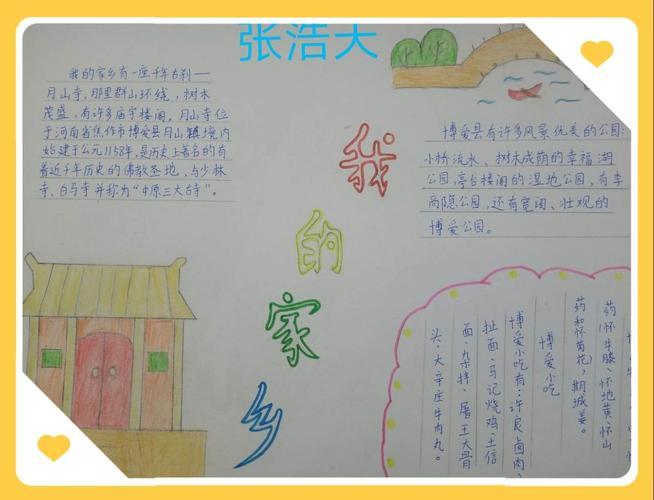 张浩天
我的家乡
我的家乡有一座千年古刹一
月山寺，那里群山环绕，树木
茂盛，有许多庙宇楼阁，月山寺位
于河南省焦作市博爱县月山镇境内
始建于公元1158年，是历史上著名的有
着近千年历史的佛教圣地，与少林
寺、白马寺并称为“中原三大古寺”。
博爱县有许多风景优美的公园：
小桥流水、树木成荫的幸福湖
公园，亭台楼阁的湿地公园，有李
商隐公园，还有宽阔、壮观的
博爱公园。
药（怀牛膝、怀地黄、怀山
药和怀菊花），期城姜。
博爱小吃
博爱小吃有：许良卤肉、
扯面、马记烧鸡、土信
面、杂拌、屠王大骨
头、大辛庄牛肉丸。